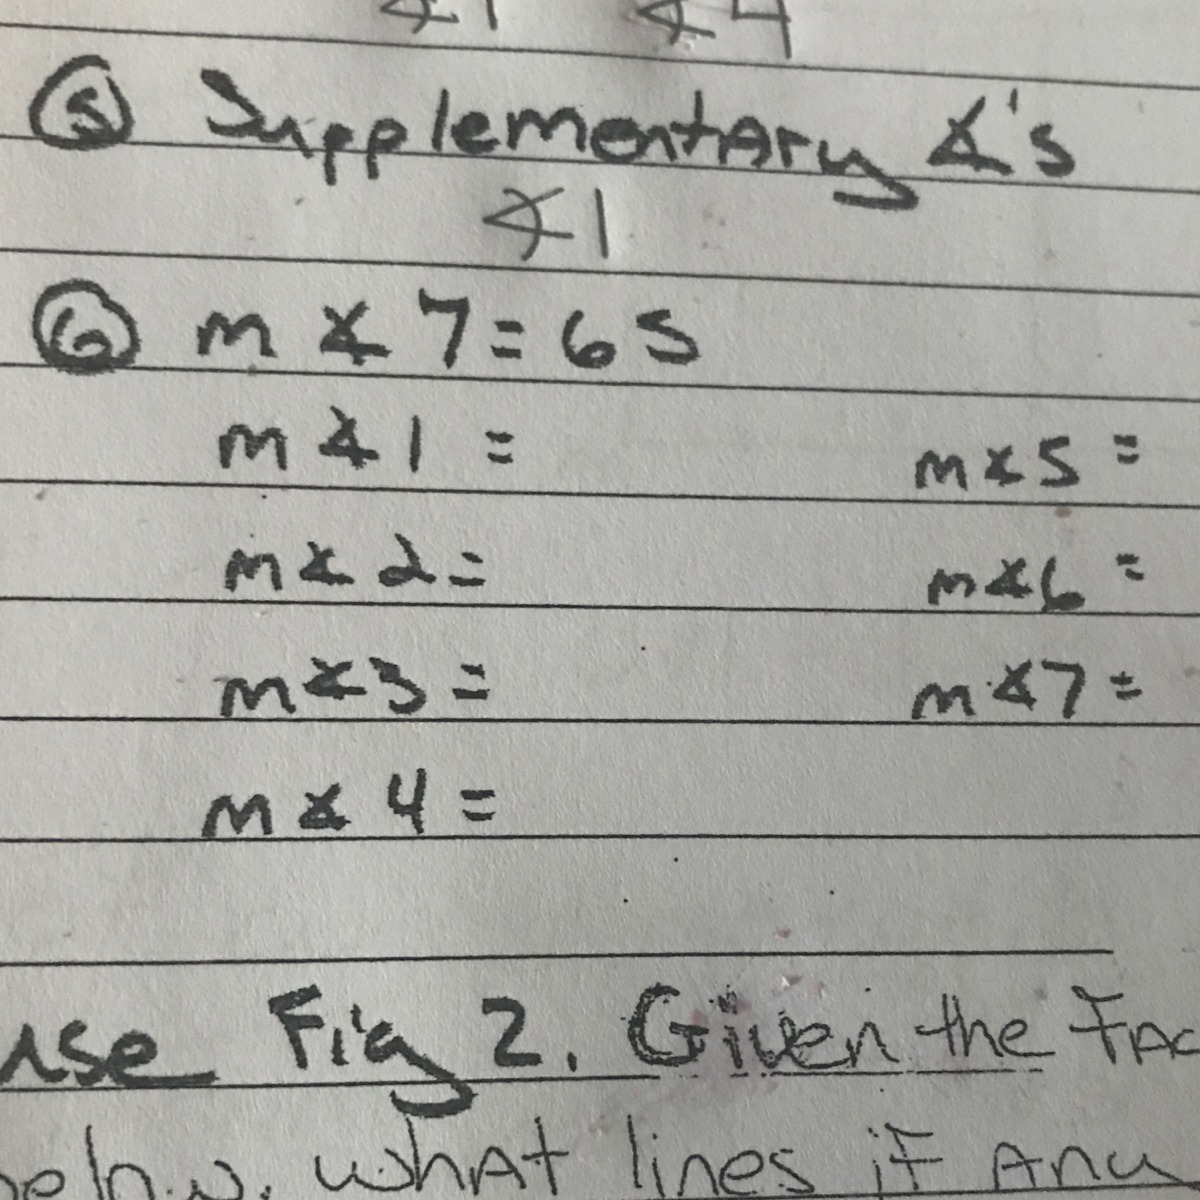 ∡1 ∡4
⑤ Supplementary ∡'s
∡1
⑥ m∡7=65
m∡1 = m∡5 =
m∡2= m∡6 =
m∡3 = m∡7 =
m∡4 =
use Fig 2. Given the
what lines if any